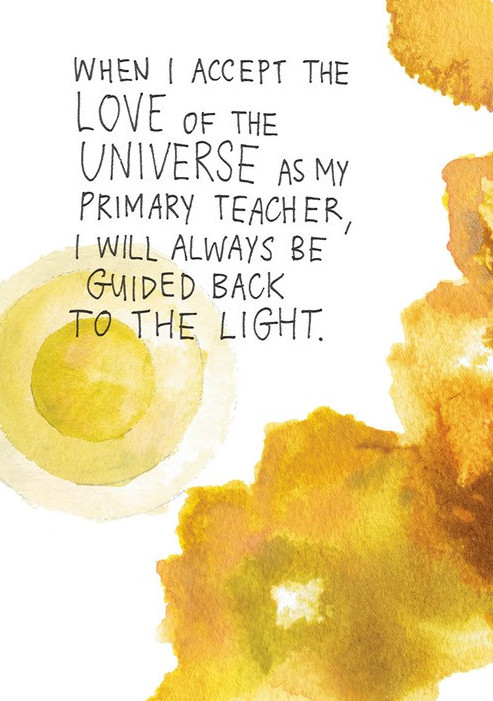 WHEN I ACCEPT THE
LOVE OF THE
UNIVERSE AS MY
PRIMARY TEACHER,
I WILL ALWAYS BE
GUIDED BACK
TO THE LIGHT.